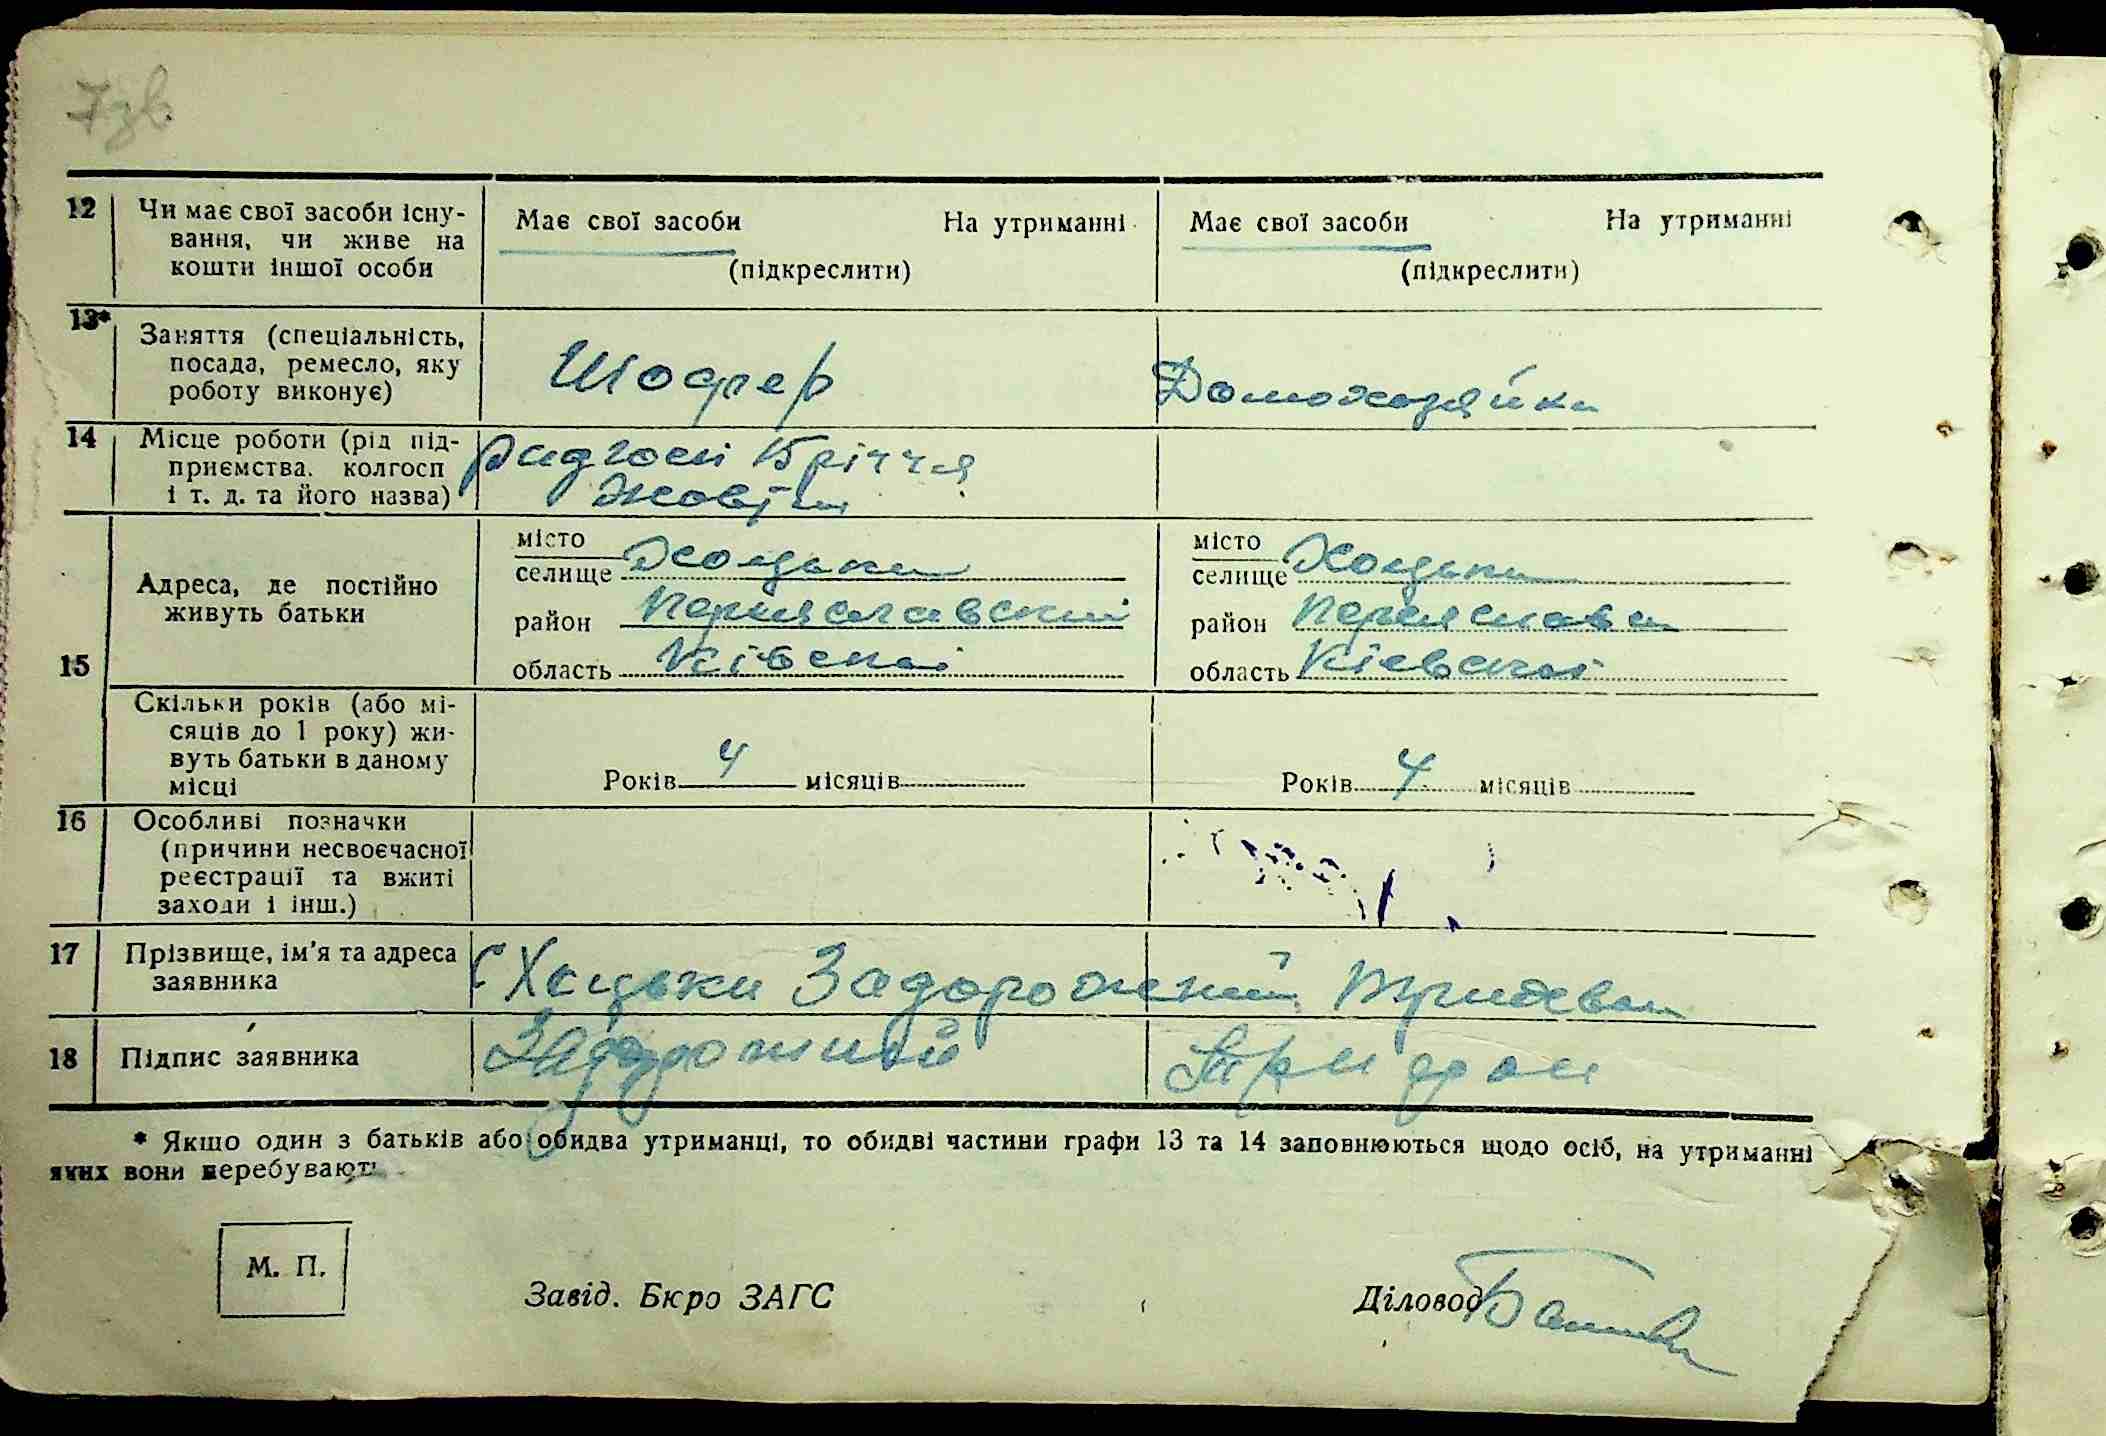 7зв
12 Чи має свої засоби існу- Має свої засоби На утриманні Має свої засоби На утриманні
вання, чи живе на
кошти іншої особи (підкреслити) (підкреслити)
13* Заняття (спеціальність,
посада, ремесло, яку Шофер Домохазяйка
роботу виконує)
14 Місце роботи (рід під- радгосп 15 річчя
приємства, колгосп Жовтня
і т. д. та його назва)
місто місто
селище Хоцьки селище Хоцьки
Адреса, де постійно
живуть батьки район Переяславский район Переяславс
15 область Київскої область Кіевскої
Скільки років (або мі-
сяців до 1 року) жи-
вуть батьки в даному Років 4 місяців Років 4 місяців
місці
16 Особливі позначки
(причини несвоєчасної
реєстрації та вжиті
заходи і інш.)
17 Прізвище, ім'я та адреса с Хоцьки Задорожний
заявника
18 Підпис заявника Задорожний
* Якщо один з батьків або обидва утриманці, то обидві частини графи 13 та 14 заповнюються щодо осіб, на утриманні
яких вони перебувають
М. П.
Завід. Бюро ЗАГС Діловод